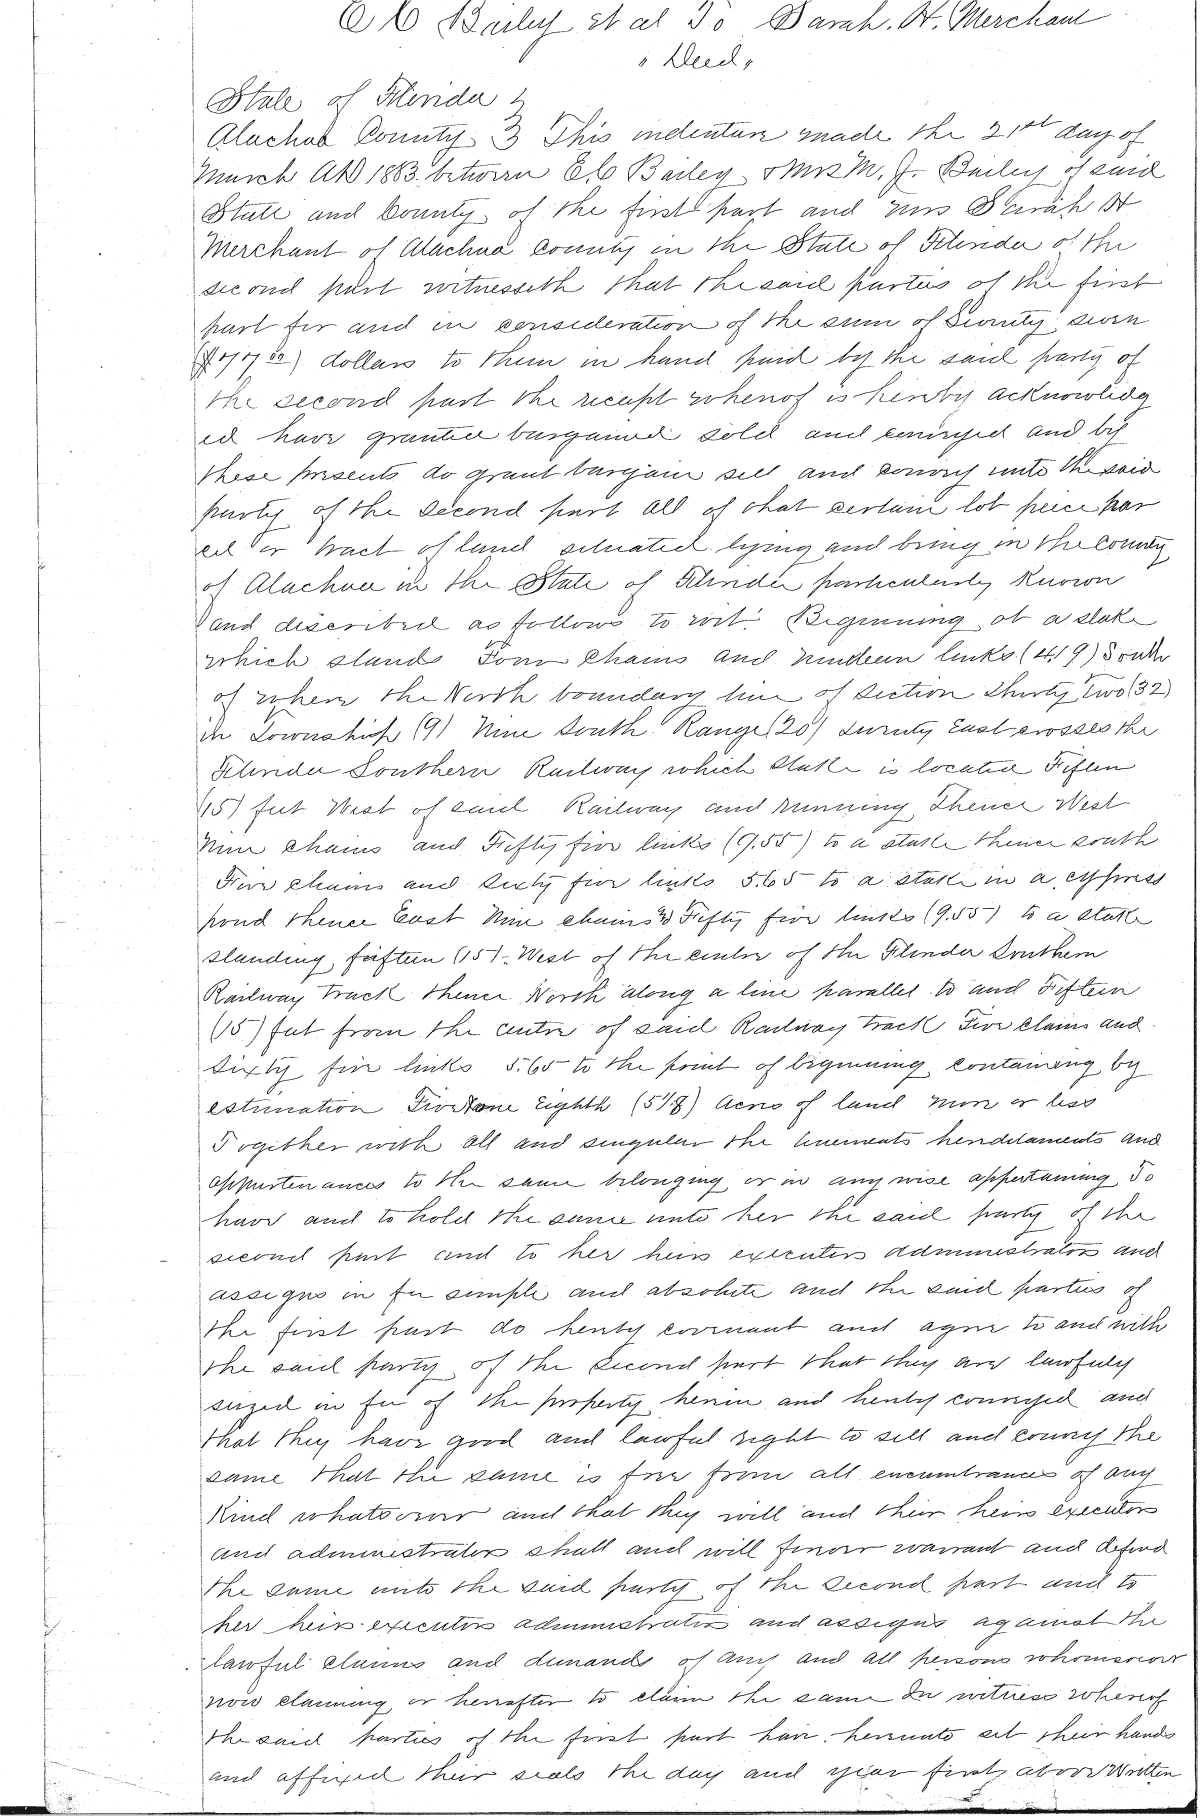 E C Bailey et al To Sarah. H. Merchant
"Deed"
State of Florida
Alachua County This indenture made the 21st day of
March AD 1883. between E. C Bailey & Mrs M. J. Bailey of said
State and County of the first part and Mrs Sarah H
Merchant of Alachua County in the State of Florida of the
second part witnesseth that the said parties of the first
part for and in consideration of the sum of Seventy seven
($77 00) dollars to them in hand paid by the said party of
the second part the receipt whereof is hereby acknowledg
ed have granted bargained sold and conveyed and by
these presents do grant bargain sell and convey unto the said
party of the second part all of that certain lot peice par
cel or tract of land situated lying and being in the County
of Alachua in the State of Florida particularly known
and described as follows to wit: Beginning at a stake
which stands Four Chains and nineteen links (4.19) South
of where the North boundary line of Section Thirty Two (32)
in Township (9) Nine South Range (20) twenty East crosses the
Florida Southern Railway which stake is located Fifteen
(15) feet West of said Railway and running thence West
Nine chains and Fifty five links (9.55) to a stake thence south
Five chains and sixty five links 5.65 to a stake in a cypress
pond thence East Nine chains & Fifty five links (9.55) to a stake
standing fifteen (15). West of the centre of the Florida Southern
Railway track thence North along a line parallel to and Fifteen
(15) feet from the centre of said Railway track Five Chains and
Sixty five links 5.65 to the point of beginning containing by
estimation Five & one Eighth (5 1/8) Acres of land more or less
Together with all and singular the tenements hereditaments and
appurtenances to the same belonging or in any wise appertaining To
have and to hold the same unto her the said party of the
second part and to her heirs executors administrators and
assigns in fee simple and absolute and the said parties of
the first part do hereby covenant and agree to and with
the said party of the second part that they are lawfuly
seized in fee of the property herein and hereby conveyed and
that they have good and lawful right to sell and convey the
same that the same is free from all encumbrances of any
Kind whatsoever and that they will and their heirs executors
and administrators shall and will forever warrant and defend
the same unto the said party of the second part and to
her heirs executors administrators and assigns against the
lawful claims and demands of any and all persons whomsoever
now claiming or hereafter to claim the same In witness whereof
the said parties of the first part have hereunto set their hands
and affixed their seals the day and year first above Written